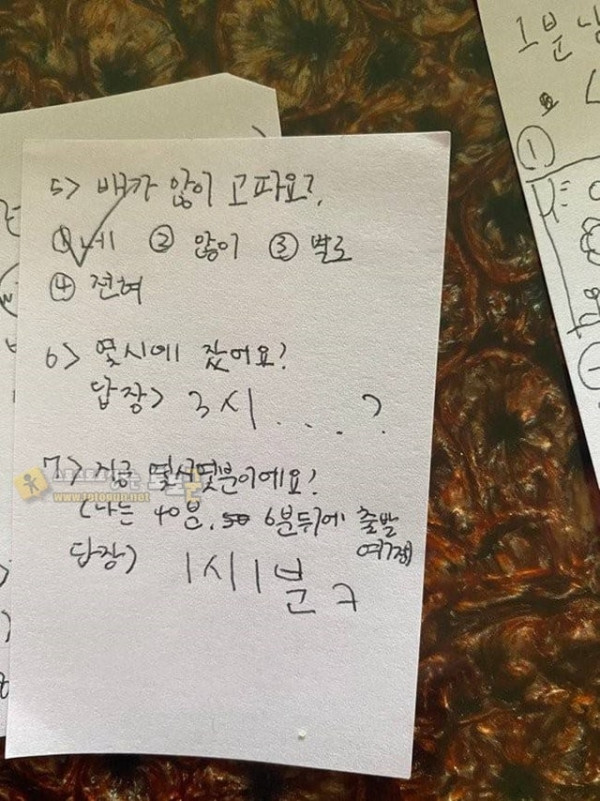 5> 배가 많이 고파요?
① 네 ② 많이 ③ 별로
④ 전혀
6> 몇시에 잤어요?
답장> 3시....?
7> 지금 몇시몇분이에요?
(나는 40분, 50 6분뒤에 출발
예정)
답장> 1시1분
www.totogun.net
1분
①